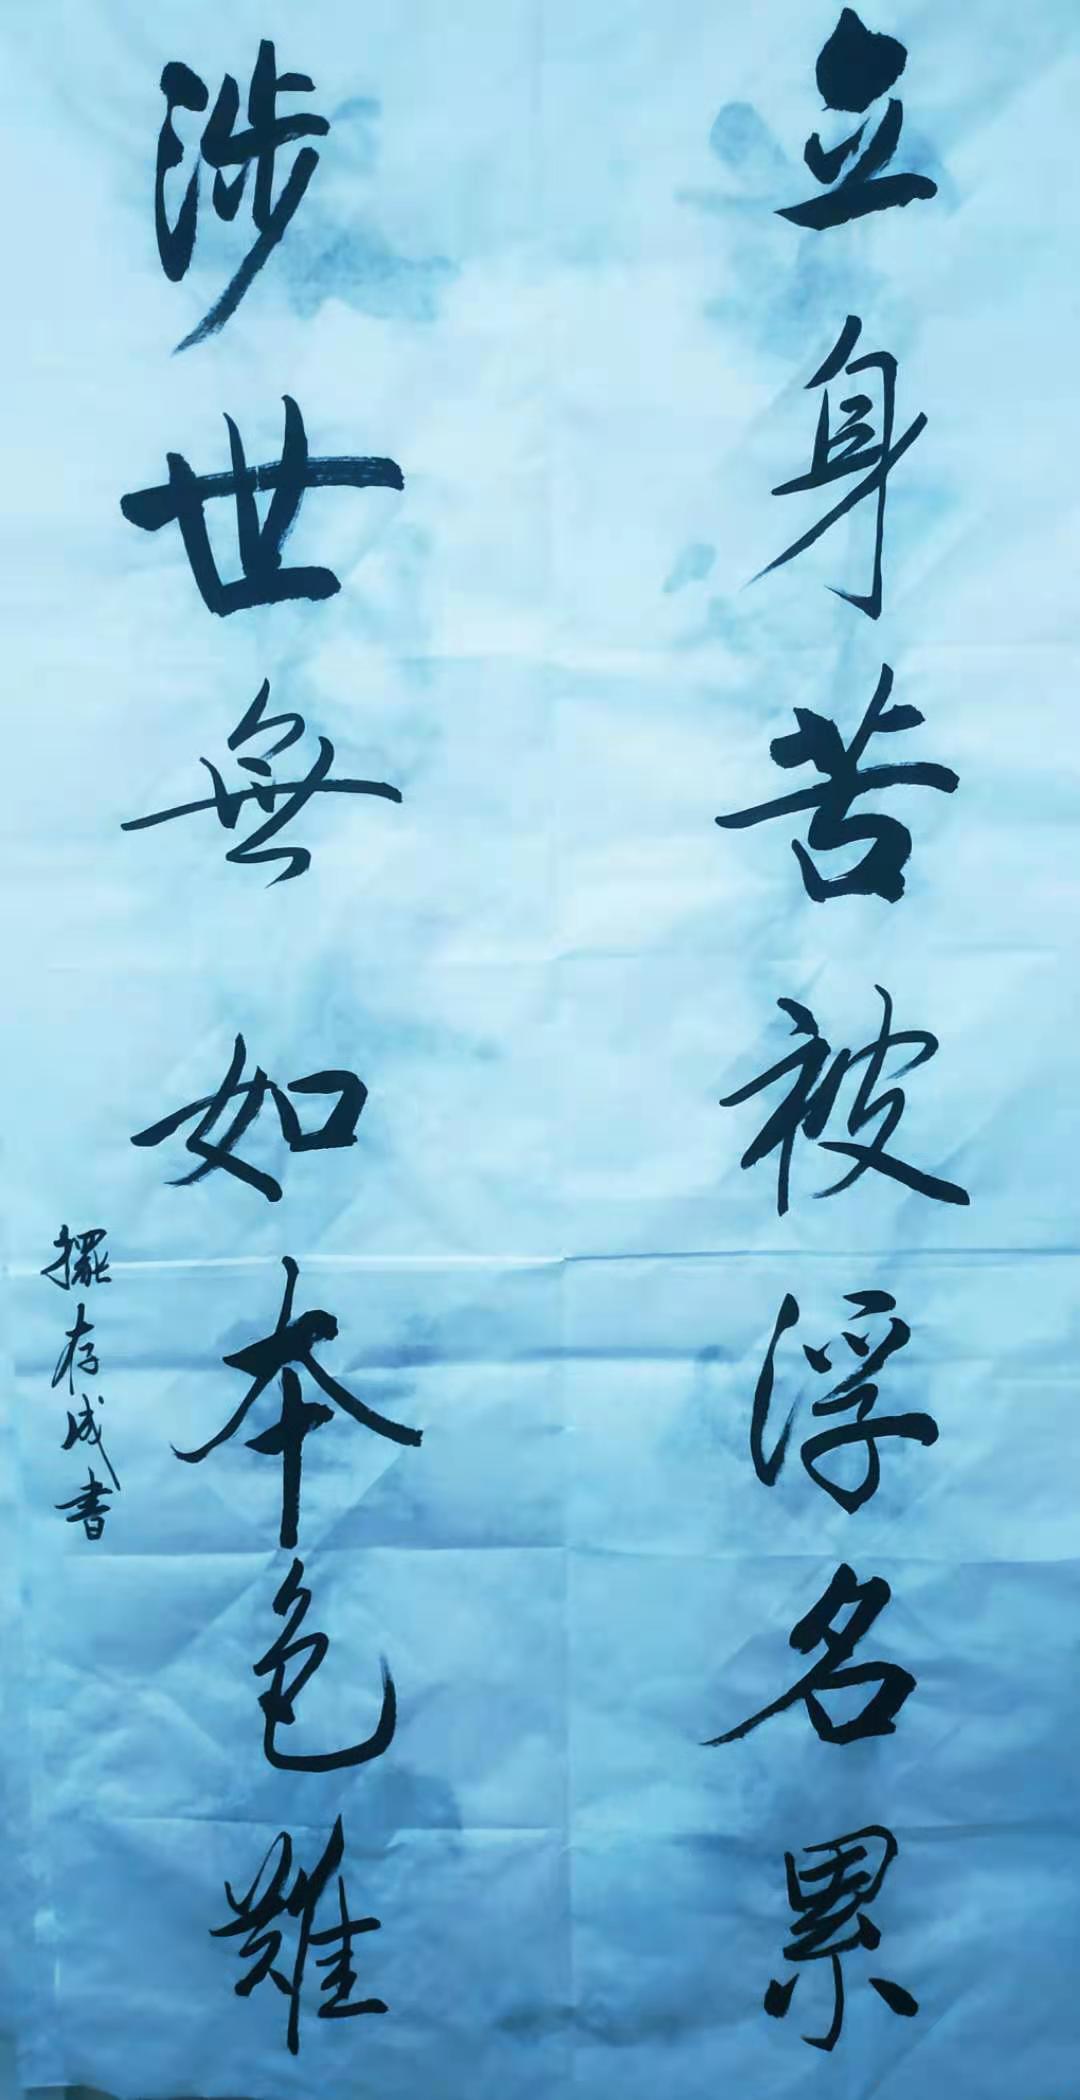 立身苦被浮名累
涉世無如本色難
擺存成書